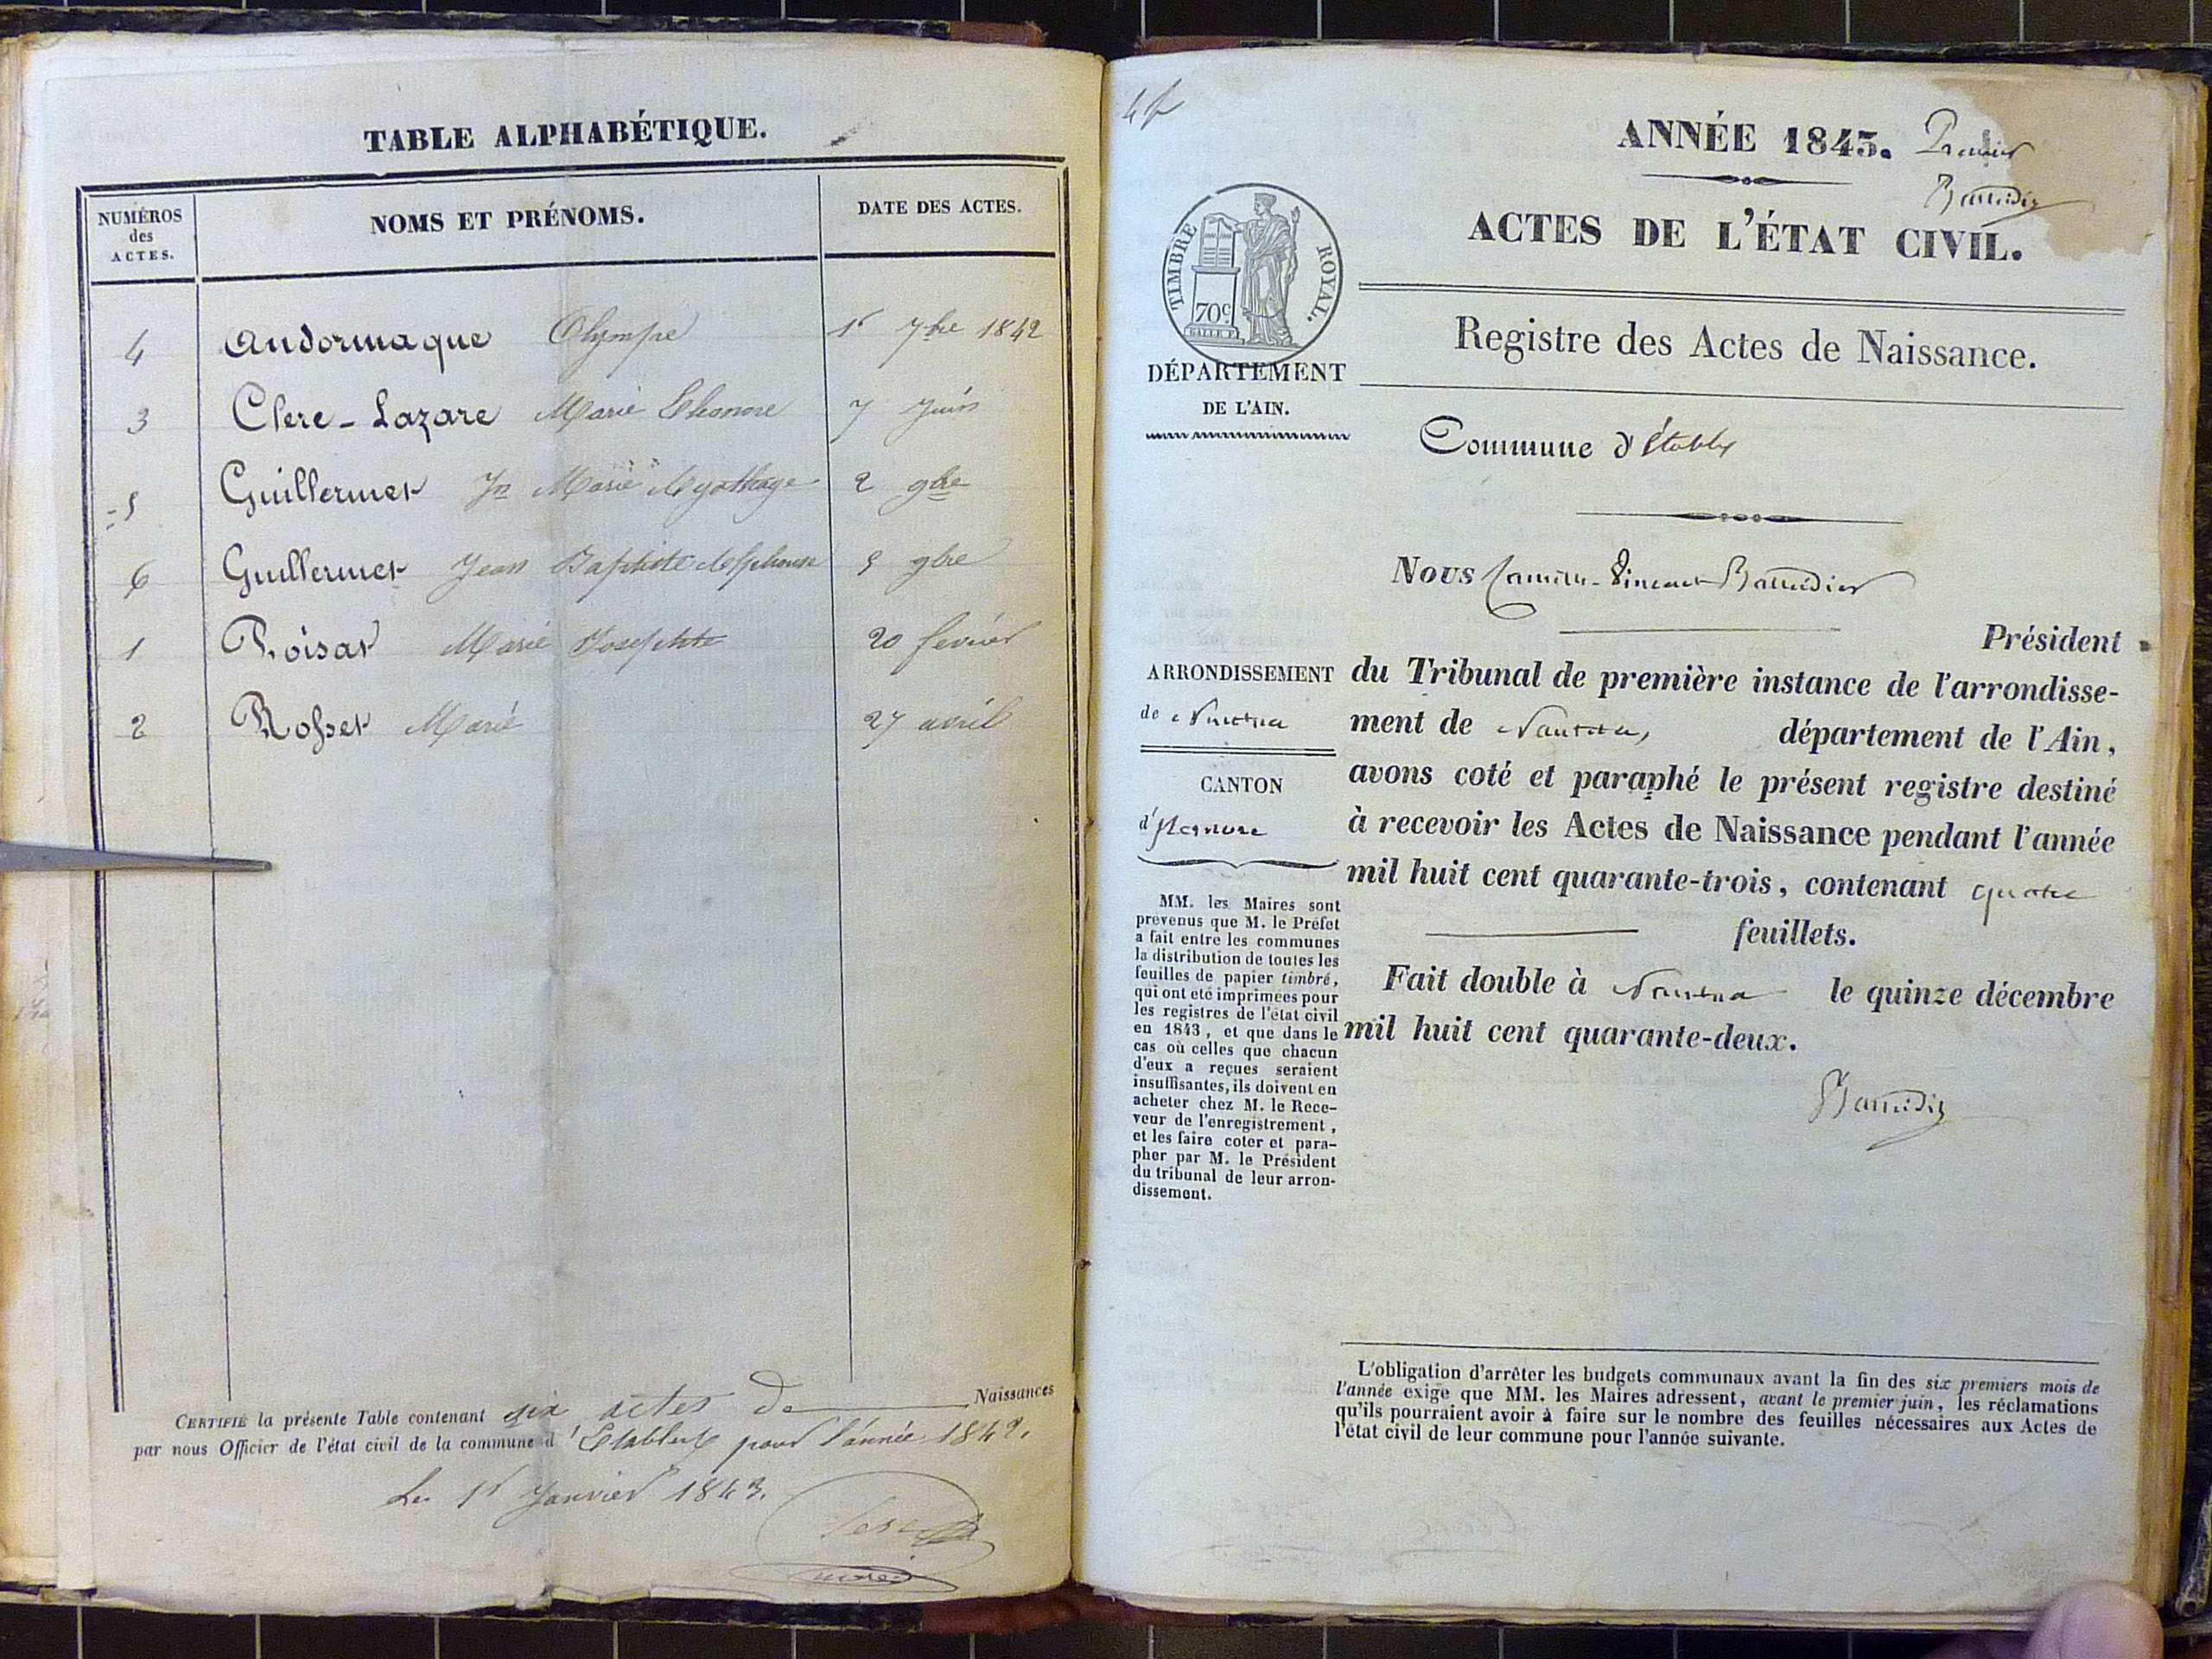 TABLE ALPHABÉTIQUE.
NUMÉROS
des
ACTES.
NOMS ET PRÉNOMS.
DATE DES ACTES.
4 Andormaque Olympe 1r 7bre 1842
3 Clere-Lazare Marie Eleonore 7 Juin
5 Guillermet Jn Marie 2 9bre
6 Guillermet Jean Baptiste Alphonse 5 9bre
1 Roisat Marie Josephte 20 fevrier
2 Rosset Marie 27 avril
CERTIFIÉ la présente Table contenant six actes de Naissances
par nous Officier de l'état civil de la commune d'Etables pour l'année 1842.
Le 1r Janvier 1843.
ANNÉE 1843. Premier
Baudier
ACTES DE L'ÉTAT CIVIL.
TIMBRE ROYAL.
70c
DÉPARTEMENT
DE L'AIN.
Registre des Actes de Naissance.
Commune d'Etables
Nous Camille-Vincent
Président
ARRONDISSEMENT
de Nantua
CANTON
d'Izernore
du Tribunal de première instance de l'arrondisse-
ment de Nantua, département de l'Ain,
avons coté et paraphé le présent registre destiné
à recevoir les Actes de Naissance pendant l'année
mil huit cent quarante-trois, contenant quatre
feuillets.
Fait double à Nantua le quinze décembre
mil huit cent quarante-deux.
MM. les Maires sont
prévenus que M. le Préfet
a fait entre les communes
la distribution de toutes les
feuilles de papier timbré,
qui ont été imprimées pour
les registres de l'état civil
en 1843, et que dans le
cas où celles que chacun
d'eux a reçues seraient
insuffisantes, ils doivent en
acheter chez M. le Rece-
veur de l'enregistrement,
et les faire coter et para-
pher par M. le Président
du tribunal de leur arron-
dissement.
L'obligation d'arrêter les budgets communaux avant la fin des six premiers mois de
l'année exige que MM. les Maires adressent, avant le premier juin, les réclamations
qu'ils pourraient avoir à faire sur le nombre des feuilles nécessaires aux Actes de
l'état civil de leur commune pour l'année suivante.